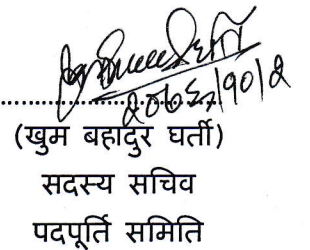 २०७६|१०|२
(खुम बहादुर घर्ती)
सदस्य सचिव
पदपूर्ति समिति